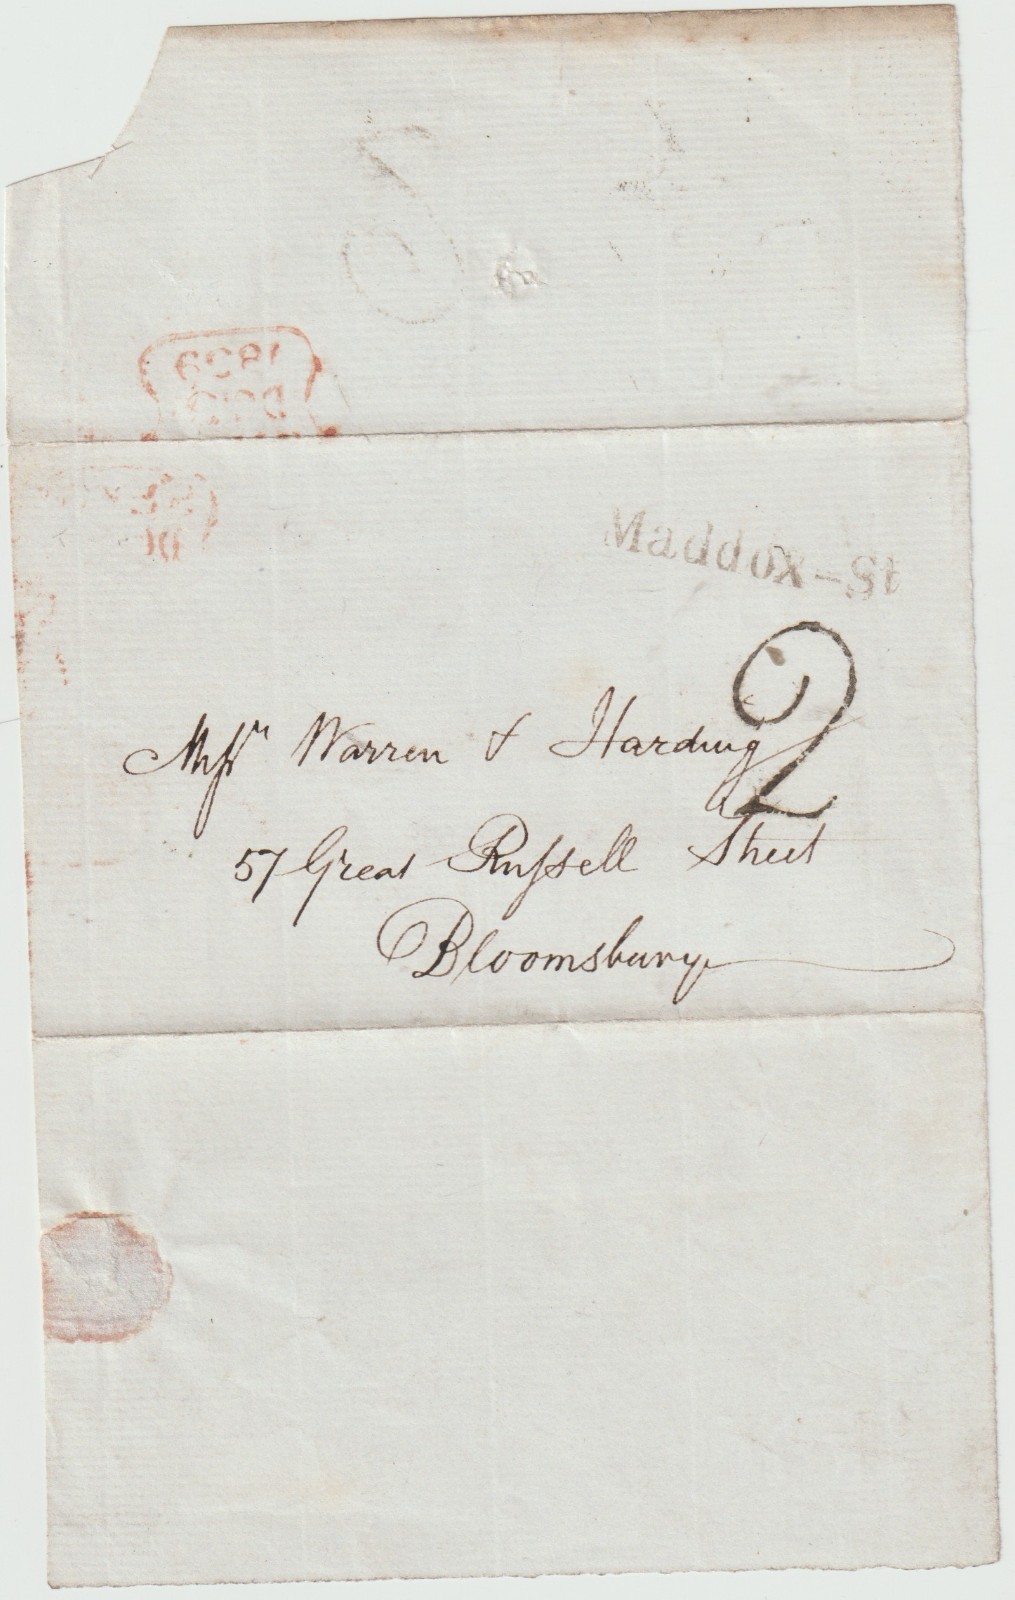 1839
Maddox-St
2
Messrs Warren & Harding
57 Great Russell Street
Bloomsbury